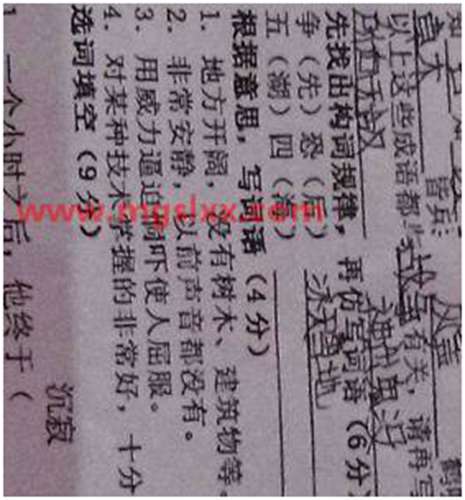 皆兵：
以上这些成语都与战争有关，请再写
神出鬼没
先找出构词规律，再仿写词语（6分
争（先）恐（后） 冰天雪地
五（湖）四（海）
根据意思，写词语（4分）
1. 地方开阔，没有树木、建筑物等。
2. 非常安静，以前声音都没有。
3. 用威力逼迫恫吓使人屈服。
4. 对某种技术掌握的非常好，十分
选词填空（9分）
沉寂
1 一个小时之后，他终于（
www.mgslxx.com